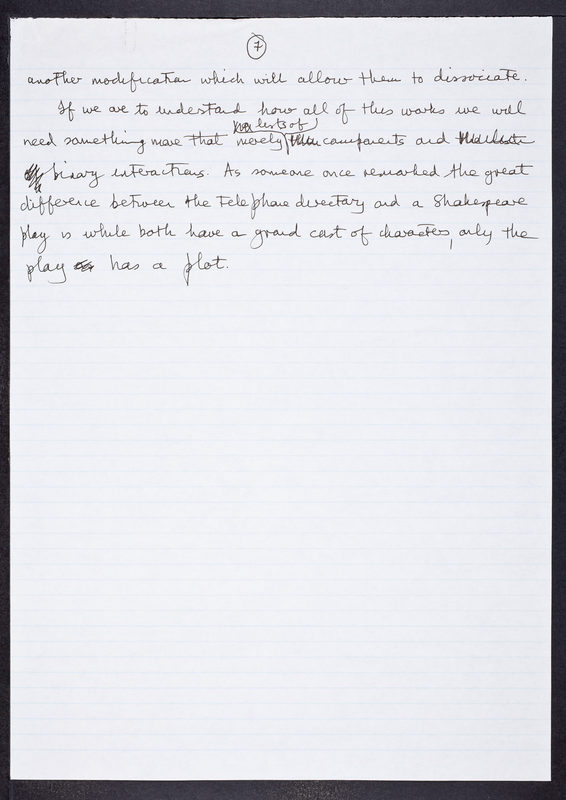 7
another modification which will allow them to dissociate.
If we are to understand how all of this works we will
need something more that merely lists of components and
binary interactions. As someone once remarked the great
difference between the Telephone directory and a Shakespeare
play is while both have a grand cast of characters, only the
play has a plot.